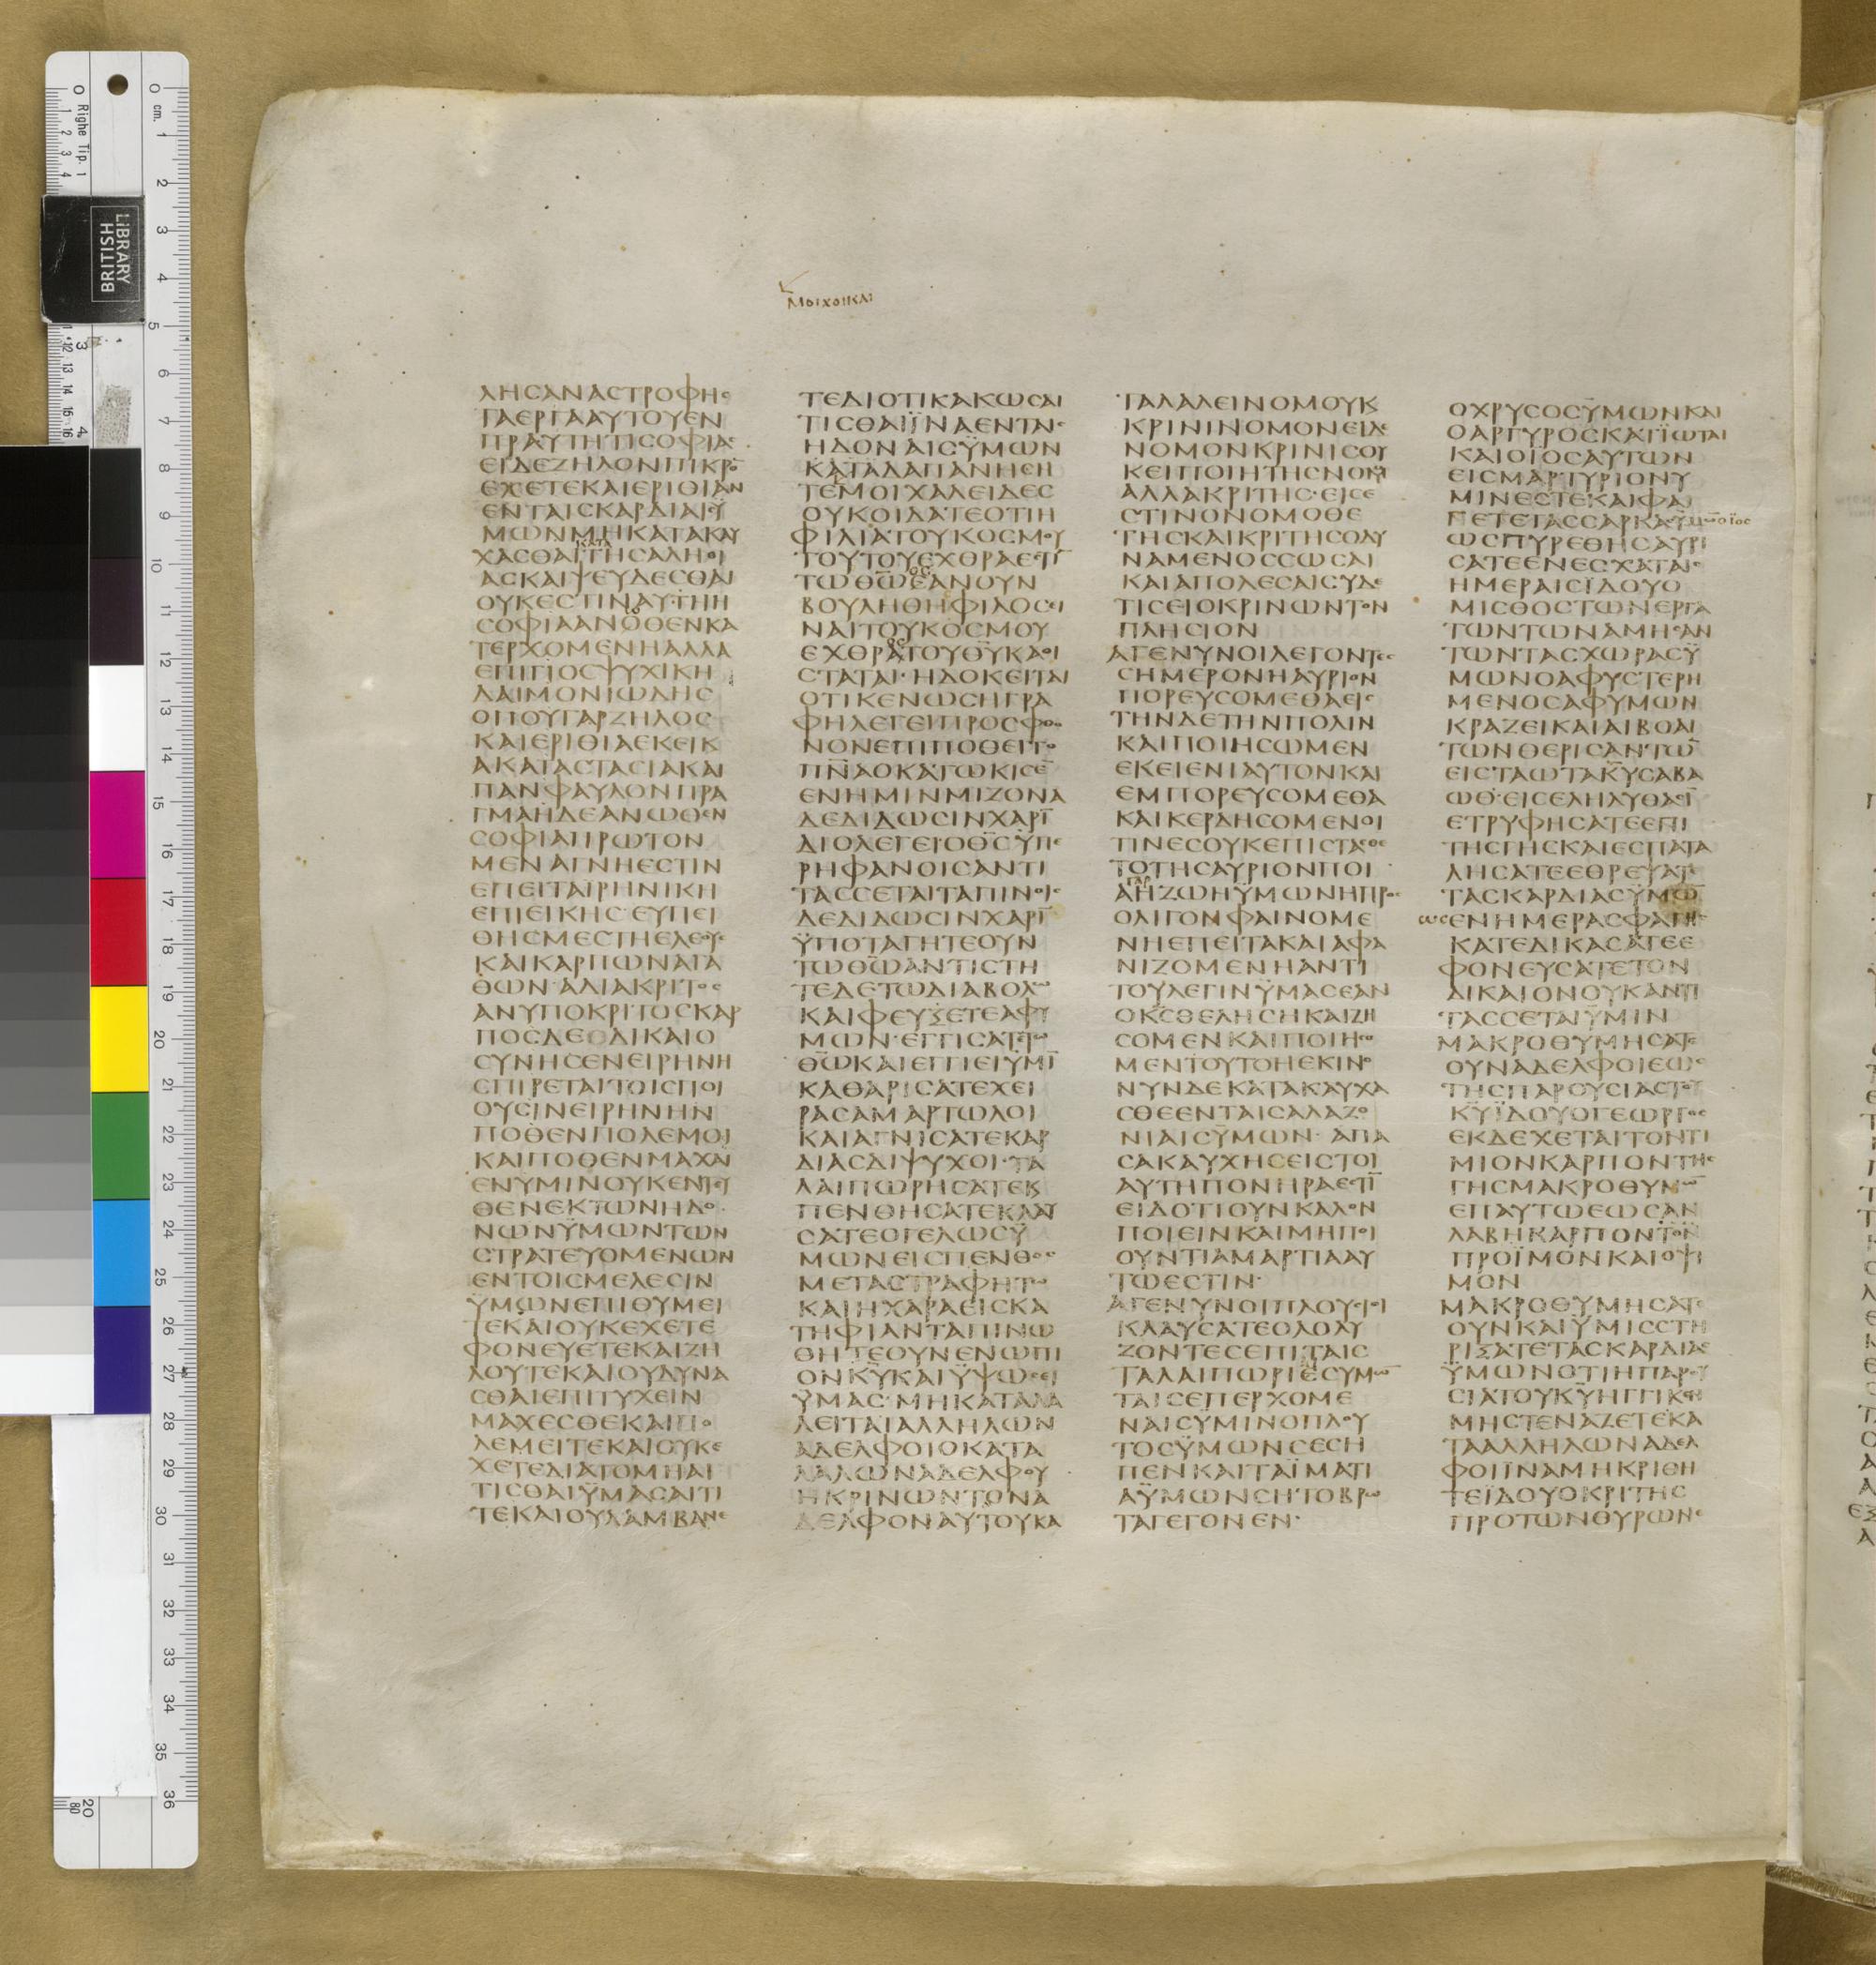 Μοιχοικαι
ΛΗСΑΝΑСΤΡΟΦΗС
ΤΑΕΡΓΑΑΥΤΟΥΕΝ
ΠΡΑΥΤΗΤΙСΟΦΙΑС
ΕΙΔΕΖΗΛΟΝΠΙΚΡΟ̅
ΕΧΕΤΕΚΑΙΕΡΙΘΙΑΝ
ΕΝΤΑΙСΚΑΡΔΙΑΙΫ
ΜΩΝΜΗΚΑΤΑΚΑΥ
ΧΑСΘΑΙΤΗСΑΛΗΘΙ
ΑСΚΑΙΨΕΥΔΕСΘΑΙ
ΟΥΚΕСΤΙΝΑΥΤΗΗ
СΟΦΙΑΑΝΟΘΕΝΚΑ
ΤΕΡΧΟΜΕΝΗΑΛΛΑ
ΕΠΙΓΙΟСΨΥΧΙΚΗ
ΔΑΙΜΟΝΙΩΔΗС
ΟΠΟΥΓΑΡΖΗΛΟС
ΚΑΙΕΡΙΘΙΑΕΚΕΙΚ
ΑΚΑΤΑСΤΑСΙΑΚΑΙ
ΠΑΝΦΑΥΛΟΝΠΡΑ
ΓΜΑΗΔΕΑΝΩΘΕΝ
СΟΦΙΑΠΡΩΤΟΝ
ΜΕΝΑΓΝΗΕСΤΙΝ
ΕΠΕΙΤΑΙΡΗΝΙΚΗ
ΕΠΙΕΙΚΗС ΕΥΠΕΙ
ΘΗСΜΕСΤΗΕΛΕΟΥС
ΚΑΙΚΑΡΠΩΝΑΓΑ
ΘΩΝ ΑΔΙΑΚΡΙΤΟС
ΑΝΥΠΟΚΡΙΤΟСΚΑΡ
ΠΟСΔΕΟΔΙΚΑΙΟ
СΥΝΗСΕΝΕΙΡΗΝΗ
СΠΙΡΕΤΑΙΤΟΙСΠΟΙ
ΟΥСΙΝΕΙΡΗΝΗΝ
ΠΟΘΕΝΠΟΛΕΜΟΙ
ΚΑΙΠΟΘΕΝΜΑΧΑΙ
ΕΝΥΜΙΝΟΥΚΕΝΤΕΥ
ΘΕΝΕΚΤΩΝΗΔΟ
ΝΩΝΫΜΩΝΤΩΝ
СΤΡΑΤΕΥΟΜΕΝΩΝ
ΕΝΤΟΙСΜΕΛΕСΙΝ
ΫΜΩΝΕΠΙΘΥΜΕΙ
ΤΕΚΑΙΟΥΚΕΧΕΤΕ
ΦΟΝΕΥΕΤΕΚΑΙΖΗ
ΛΟΥΤΕΚΑΙΟΥΔΥΝΑ
СΘΑΙΕΠΙΤΥΧΕΙΝ
ΜΑΧΕСΘΕΚΑΙΠΟ
ΛΕΜΕΙΤΕΚΑΙΟΥΚΕ
ΧΕΤΕΔΙΑΤΟΜΗΑΙ
ΤΙСΘΑΙΫΜΑСΑΙΤΙ
ΤΕΚΑΙΟΥΛΑΜΒΑΝΕ
ΤΕΔΙΟΤΙΚΑΚΩСΑΙ
ΤΙСΘΑΙΪΝΑΕΝΤΑΙС
ΗΔΟΝΑΙСΫΜΩΝ
ΚΑΤΑΔΑΠΑΝΗСΗ
ΤΕΜΟΙΧΑΛΕΙΔΕС
ΟΥΚΟΙΔΑΤΕΟΤΙΗ
ΦΙΛΙΑΤΟΥΚΟСΜΟΥ
ΤΟΥΤΟΥΕΧΘΡΑΕСΤΙ̅
ΤΩΘ̅Ω̅ΕΑΝΟΥΝ
ΒΟΥΛΗΘΗΦΙΛΟСΕΙ
ΝΑΙΤΟΥΚΟСΜΟΥ
ΕΧΘΡΑΤΟΥΘ̅Υ̅ΚΑΘΙ
СΤΑΤΑΙ·ΗΔΟΚΕΙΤΑΙ
ΟΤΙΚΕΝΩСΗΓΡΑ
ΦΗΛΕΓΕΙΠΡΟСΦΘΟ
ΝΟΝΕΠΙΠΟΘΕΙΤΟ
ΠΝ̅ΑΟΚΑΤΩΚΙСΕ̅
ΕΝΗΜΙΝΜΙΖΟΝΑ
ΔΕΔΙΔΩСΙΝΧΑΡΙ̅
ΔΙΟΛΕΓΕΙΟΘ̅С̅ΫΠΕ
ΡΗΦΑΝΟΙСΑΝΤΙ
ΤΑССΕΤΑΙΤΑΠΙΝΟΙС
ΔΕΔΙΔΩСΙΝΧΑΡΙ̅
ΫΠΟΤΑΓΗΤΕΟΥΝ
ΤΩΘ̅Ω̅ΑΝΤΙСΤΗ
ΤΕΔΕΤΩΔΙΑΒΟΛΩ
ΚΑΙΦΕΥΞΕΤΕΑΦΥ
ΜΩΝ·ΕΓΓΙСΑΤΕΤΩ
Θ̅Ω̅ΚΑΙΕΓΓΙΕΙΫΜΙ̅
ΚΑΘΑΡΙСΑΤΕΧΕΙ
ΡΑСΑΜΑΡΤΩΛΟΙ
ΚΑΙΑΓΝΙСΑΤΕΚΑΡ
ΔΙΑСΔΙΨΥΧΟΙ·ΤΑ
ΛΑΙΠΩΡΗСΑΤΕΚ
ΠΕΝΘΗСΑΤΕΚΛΑΥ
СΑΤΕΟΓΕΛΩСΫ
ΜΩΝΕΙСΠΕΝΘΟС
ΜΕΤΑСΤΡΑΦΗΤΩ
ΚΑΙΗΧΑΡΑΕΙСΚΑ
ΤΗΦΙΑΝΤΑΠΙΝΩ
ΘΗΤΕΟΥΝΕΝΩΠΙ
ΟΝΚ̅Υ̅ΚΑΙΫΨΩСΕΙ
ΫΜΑС·ΜΗΚΑΤΑΛΑ
ΛΕΙΤΑΙΑΛΛΗΛΩΝ
ΑΔΕΛΦΟΙΟΚΑΤΑ
ΛΑΛΩΝΑΔΕΛΦΟΥ
ΗΚΡΙΝΩΝΤΟΝΑ
ΔΕΛΦΟΝΑΥΤΟΥΚΑ
ΤΑΛΑΛΕΙΝΟΜΟΥΚ
ΚΡΙΝΙΝΟΜΟΝΕΙΔΕ
ΝΟΜΟΝΚΡΙΝΙСΟΥ
ΚΕΙΠΟΙΗΤΗСΝΟΜΟΥ
ΑΛΛΑΚΡΙΤΗС·ΕΙСΕ
СΤΙΝΟΝΟΜΟΘΕ
ΤΗСΚΑΙΚΡΙΤΗСΟΔΥ
ΝΑΜΕΝΟССΩСΑΙ
ΚΑΙΑΠΟΛΕСΑΙСΥΔΕ
ΤΙСΕΙΟΚΡΙΝΩΝΤΟΝ
ΠΛΗСΙΟΝ
ΑΓΕΝΥΝΟΙΛΕΓΟΝΤΕС
СΗΜΕΡΟΝΗΑΥΡΙΟΝ
ΠΟΡΕΥСΟΜΕΘΑΕΙС
ΤΗΝΔΕΤΗΝΠΟΛΙΝ
ΚΑΙΠΟΙΗСΩΜΕΝ
ΕΚΕΙΕΝΙΑΥΤΟΝΚΑΙ
ΕΜΠΟΡΕΥСΟΜΕΘΑ
ΚΑΙΚΕΡΔΗСΟΜΕΝΟΙ
ΤΙΝΕСΟΥΚΕΠΙСΤΑСΘΕ
ΤΟΤΗСΑΥΡΙΟΝΠΟΙ
ΑΗΖΩΗΫΜΩΝΗΠΡΟС
ΟΛΙΓΟΝΦΑΙΝΟΜΕ
ΝΗΕΠΕΙΤΑΚΑΙΑΦΑ
ΝΙΖΟΜΕΝΗΑΝΤΙ
ΤΟΥΛΕΓΙΝΫΜΑСΕΑΝ
ΟΚ̅С̅ΘΕΛΗСΗΚΑΙΖΗ
СΟΜΕΝΚΑΙΠΟΙΗСΩ
ΜΕΝΤΟΥΤΟΗΕΚΙΝΟ
ΝΥΝΔΕΚΑΤΑΚΑΥΧΑ
СΘΕΕΝΤΑΙСΑΛΑΖΟ
ΝΙΑΙСΫΜΩΝ· ΑΠΑ
СΑΚΑΥΧΗСΕΙСΤΟΙ
ΑΥΤΗΠΟΝΗΡΑΕСΤΙ̅
ΕΙΔΟΤΙΟΥΝΚΑΛΟΝ
ΠΟΙΕΙΝΚΑΙΜΗΠΟΙ
ΟΥΝΤΙΑΜΑΡΤΙΑΑΥ
ΤΩΕСΤΙΝ·
ΑΓΕΝΥΝΟΙΠΛΟΥСΙΟΙ
ΚΛΑΥСΑΤΕΟΛΟΛΥ
ΖΟΝΤΕСΕΠΙΤΑΙС
ΤΑΛΑΙΠΩΡΙΕСΥΜΩ̅
ΤΑΙСΕΠΕΡΧΟΜΕ
ΝΑΙСΥΜΙΝΟΠΛΟΥ
ΤΟСΫΜΩΝСΕСΗ
ΠΕΝΚΑΙΤΑΪΜΑΤΙ
ΑΫΜΩΝСΗΤΟΒΡΩ
ΤΑΓΕΓΟΝΕΝ·
ΟΧΡΥСΟСΫΜΩΝΚΑΙ
ΟΑΡΓΥΡΟСΚΑΤΪΩΤΑΙ
ΚΑΙΟΪΟСΑΥΤΩΝ
ΕΙСΜΑΡΤΥΡΙΟΝΥ
ΜΙΝΕСΤΕΚΑΙΦΑ
ΓΕΤΕΤΑССΑΡΚΑСΥΜΩ̅ΟΪΟС
ΩСΠΥΡΕΘΗСΑΥΡΙ
СΑΤΕΕΝΕСΧΑΤΑΙС
ΗΜΕΡΑΙСΪΔΟΥΟ
ΜΙСΘΟСΤΩΝΕΡΓΑ
ΤΩΝΤΩΝΑΜΗСΑΝ
ΤΩΝΤΑСΧΩΡΑСΫ
ΜΩΝΟΑΦΥСΤΕΡΗ
ΜΕΝΟСΑΦΥΜΩΝ
ΚΡΑΖΕΙΚΑΙΑΙΒΟΑΙ
ΤΩΝΘΕΡΙСΑΝΤΩ̅
ΕΙСΤΑΩΤΑΚ̅Υ̅СΑΒΑ
ΩΘ·ΕΙСΕΛΗΛΥΘΑСΙ̅
ΕΤΡΥΦΗСΑΤΕΕΠΙ
ΤΗСΓΗСΚΑΙΕСΠΑΤΑ
ΛΗСΑΤΕΕΘΡΕΨΑΤΕ
ΤΑСΚΑΡΔΙΑСΫΜΩ̅
ωсΕΝΗΜΕΡΑСΦΑΓΗС
ΚΑΤΕΔΙΚΑСΑΤΕΕ
ΦΟΝΕΥСΑΤΕΤΟΝ
ΔΙΚΑΙΟΝΟΥΚΑΝΤΙ
ΤΑССΕΤΑΙΫΜΙΝ
ΜΑΚΡΟΘΥΜΗСΑΤΕ
ΟΥΝΑΔΕΛΦΟΙΕΩС
ΤΗСΠΑΡΟΥСΙΑСΤΟΥ
Κ̅Υ̅ΪΔΟΥΟΓΕΩΡΓΟС
ΕΚΔΕΧΕΤΑΙΤΟΝΤΙ
ΜΙΟΝΚΑΡΠΟΝΤΗС
ΓΗСΜΑΚΡΟΘΥΜΩ̅
ΕΠΑΥΤΩΕΩСΑΝ
ΛΑΒΗΚΑΡΠΟΝΤΟΝ
ΠΡΟΪΜΟΝΚΑΙΟΨΙ
ΜΟΝ
ΜΑΚΡΟΘΥΜΗСΑΤΕ
ΟΥΝΚΑΙΫΜΙССΤΗ
ΡΙΞΑΤΕΤΑСΚΑΡΔΙΑС
ΫΜΩΝΟΤΙΗΠΑΡΟΥ
СΙΑΤΟΥΚ̅Υ̅ΗΓΓΙΚΕΝ
ΜΗСΤΕΝΑΖΕΤΕΚΑ
ΤΑΑΛΛΗΛΩΝΑΔΕΛ
ΦΟΙΪΝΑΜΗΚΡΙΘΗ
ΤΕΪΔΟΥΟΚΡΙΤΗС
ΠΡΟΤΩΝΘΥΡΩΝΕ
BRITISH
LIBRARY
Righe Tip. 1
cm.